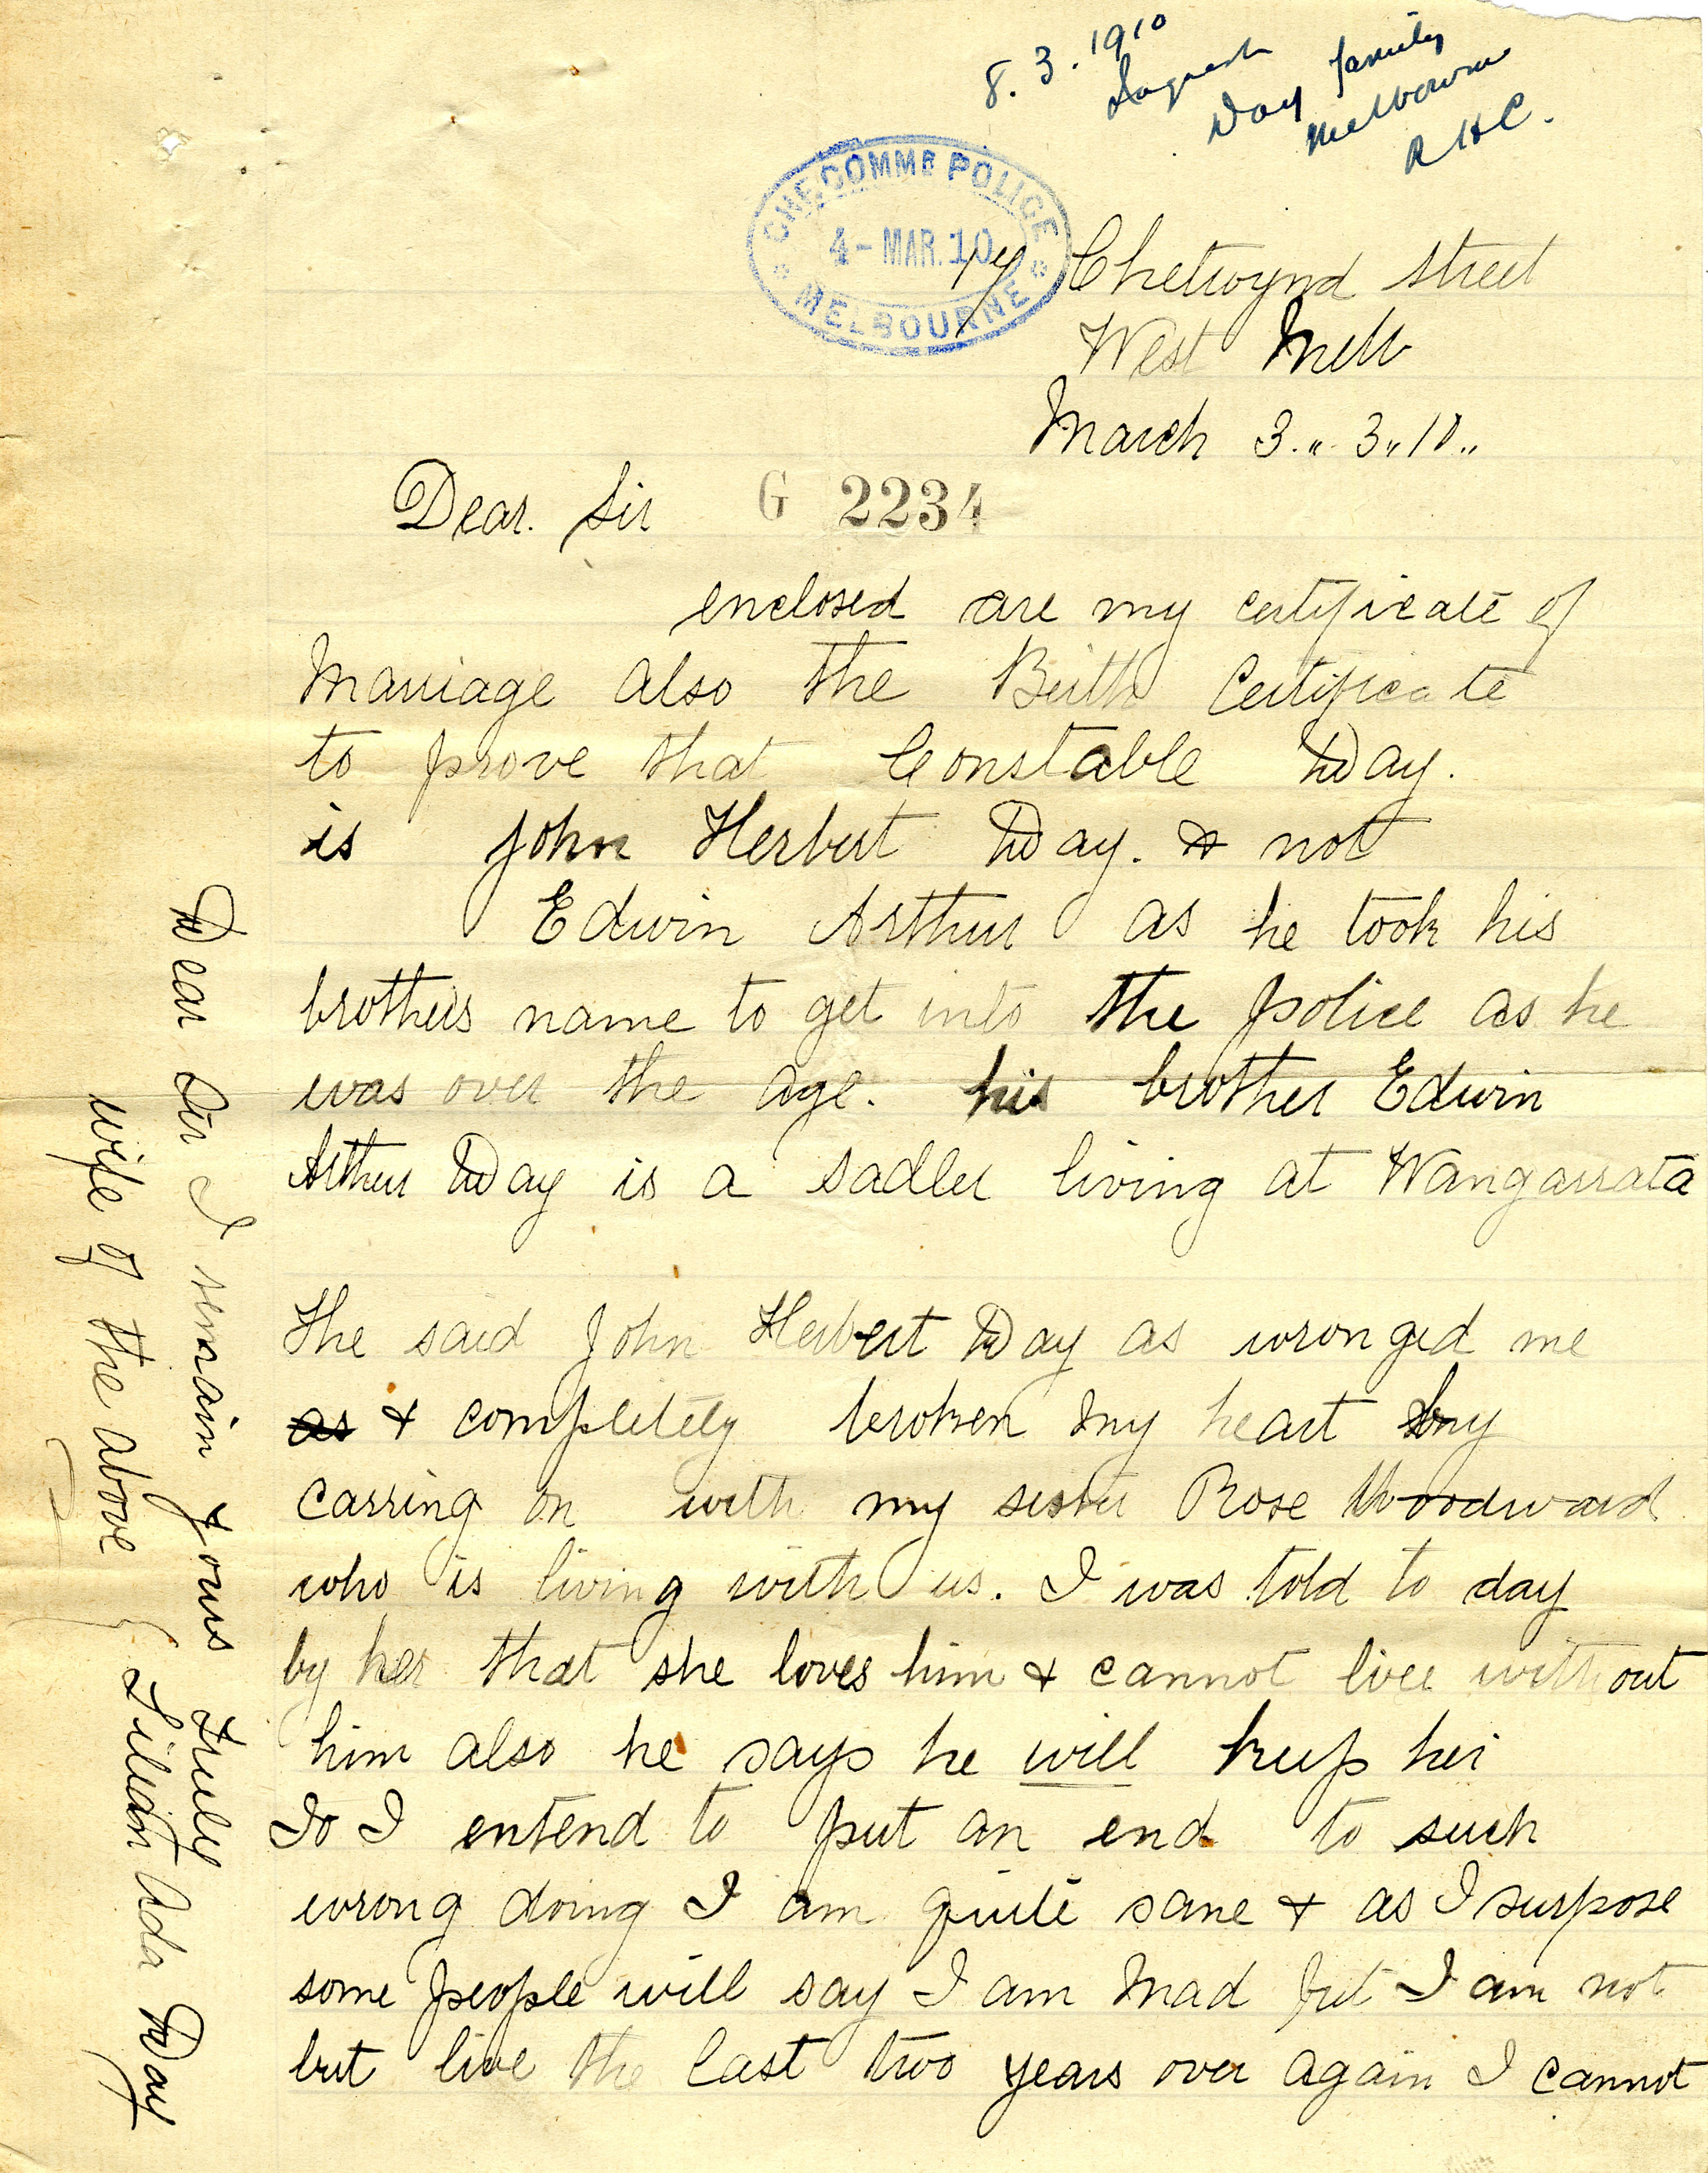 8.3.1910
Inquest
Day family
Melbourne
R H C.
CHF COMMR POLICE
4 - MAR. 10
MELBOURNE
17 Chetwynd street
West Melb
March 3.,, 3,,10,,
Dear. Sir
G 2234
enclosed are my certificate of
Marriage also the Birth Certificate
to prove that Constable Day.
is John Herbert Day. & not
Edwin Arthur as he took his
brothers name to get into the police as he
was over the age. his brother Edwin
Arthur Day is a sadler living at Wangarrata
The said John Herbert Day as wronged me
as & completely broken my heart by
carring on with my sister Rose Woodward
who is living with us. I was told to day
by her that she loves him & cannot live without
him also he says he will keep her
So I entend to put an end to such
wrong doing I am quite sane & as I surpose
some people will say I am mad but I am not
but live the last two years over again I cannot
Dear Sir I remain Yours Truly
wife of the above Lilian Ada Day